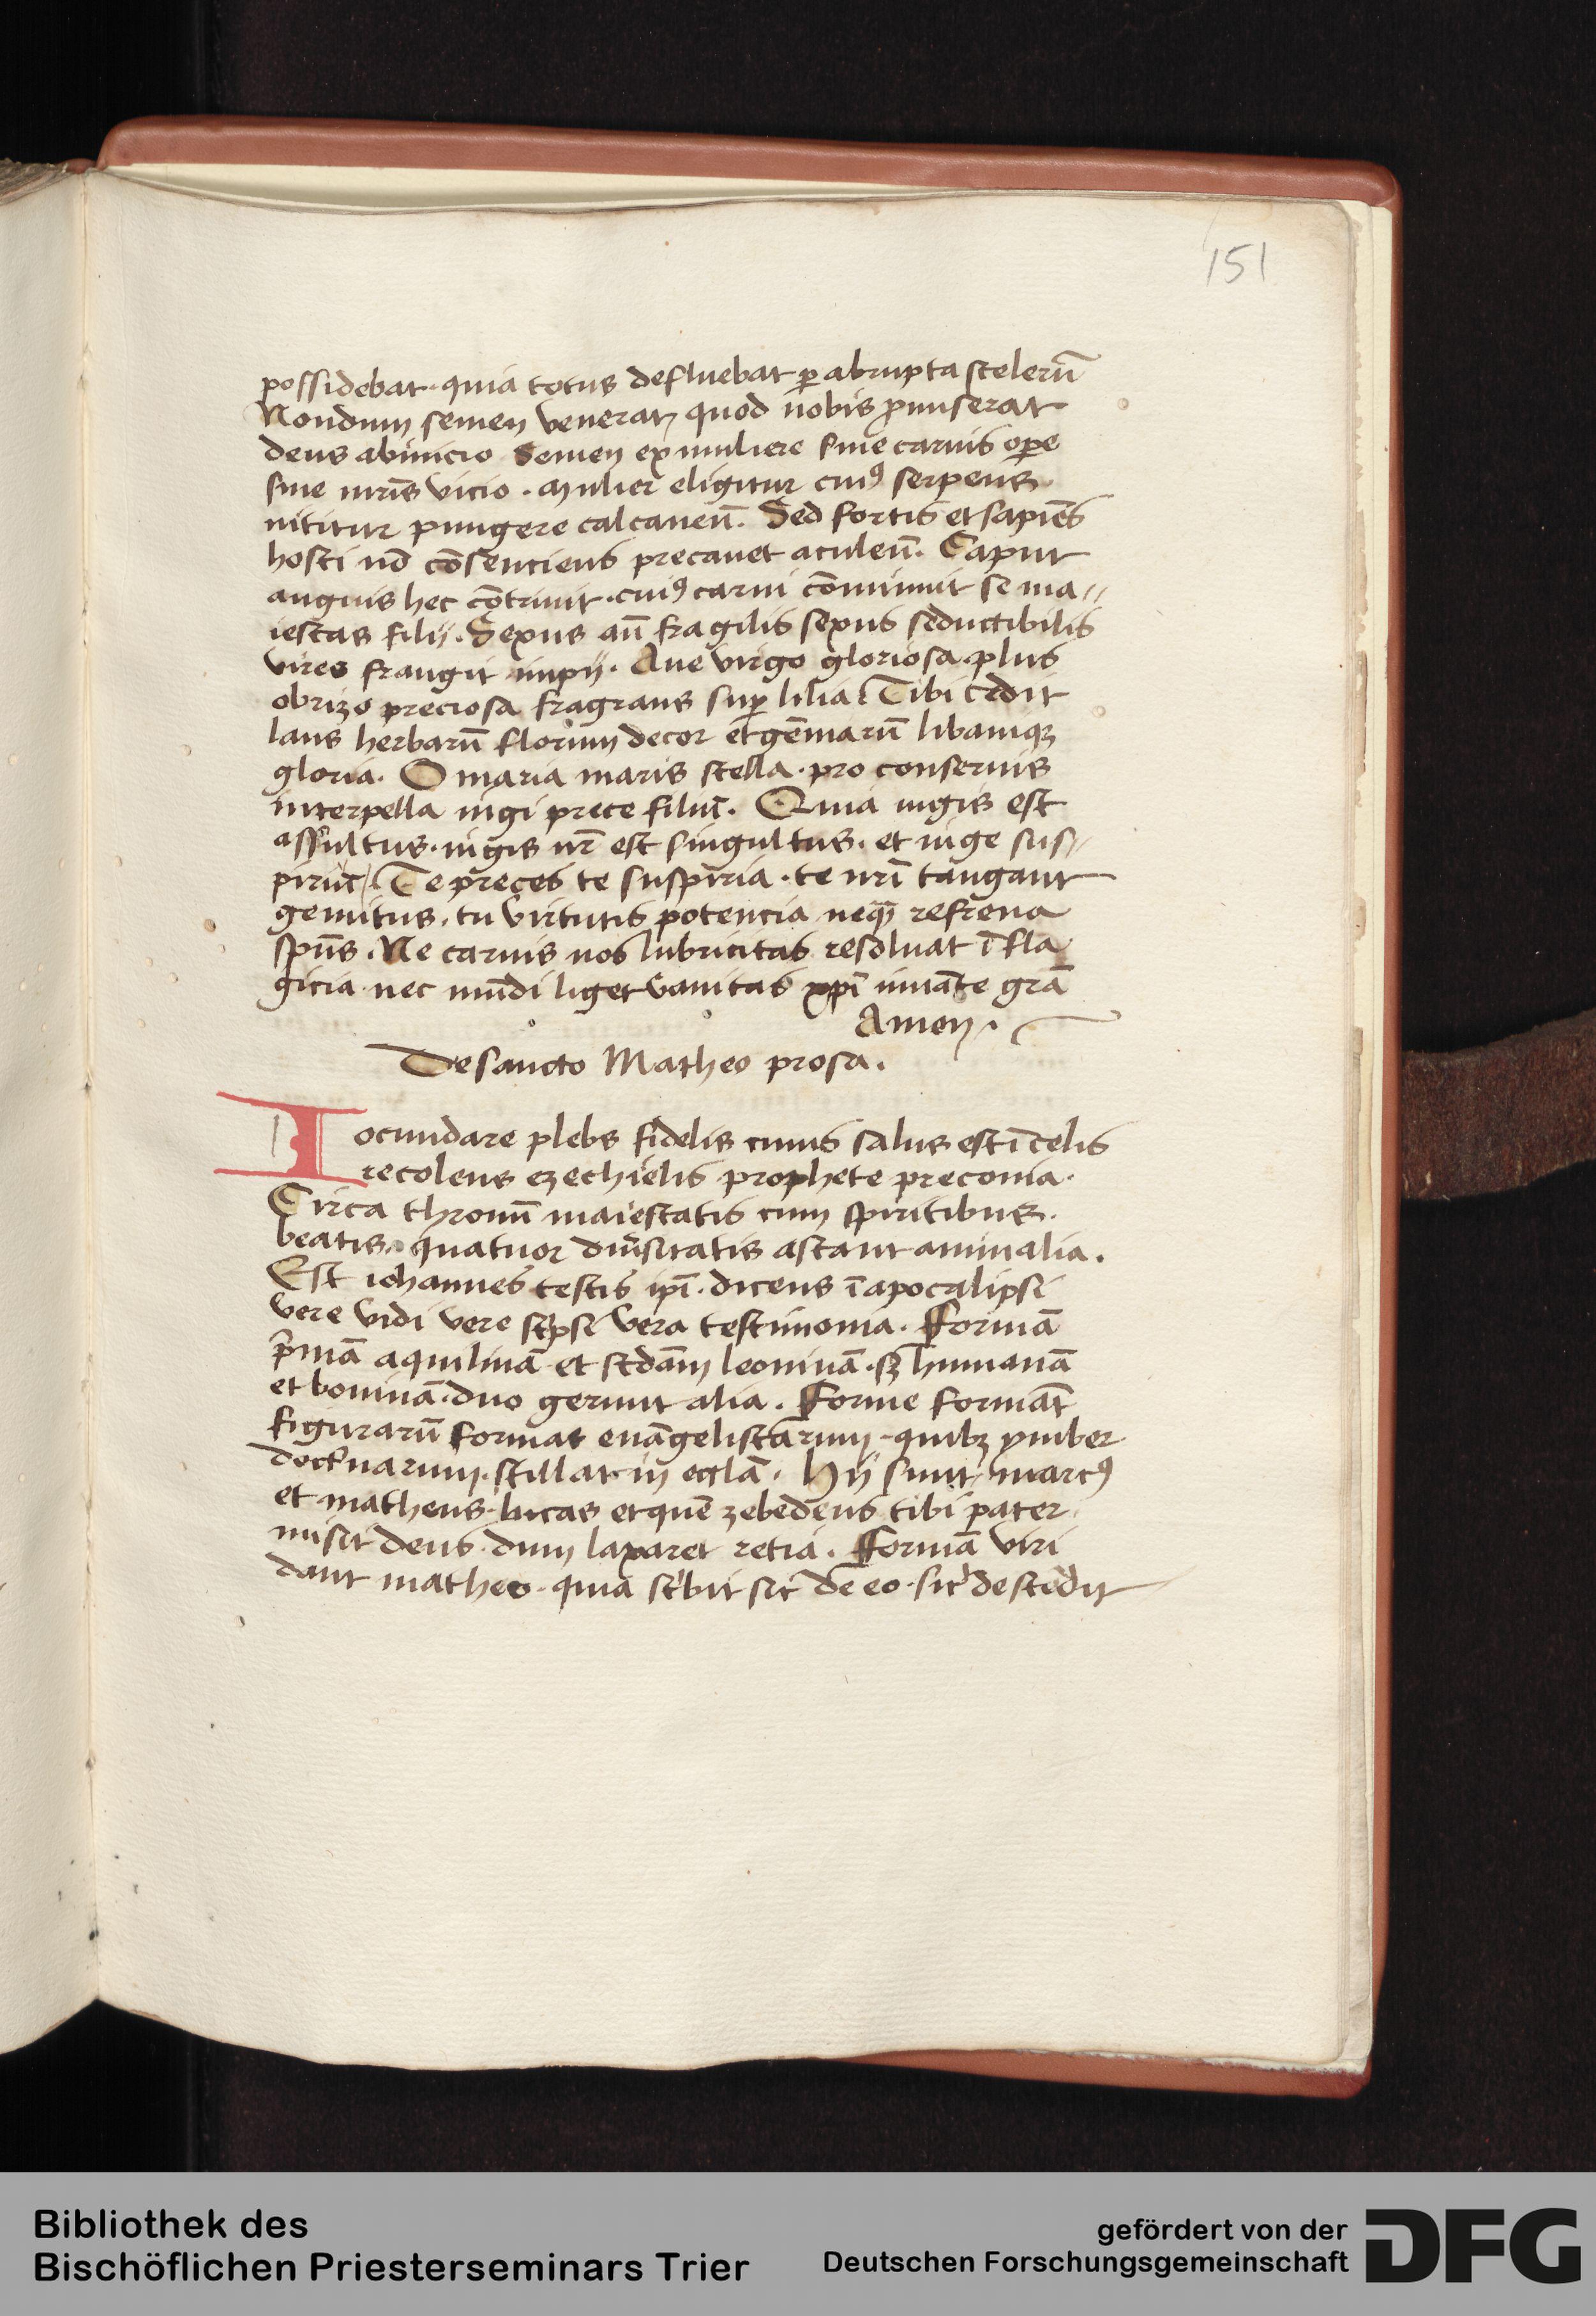 151
possidebat · quia totus defluebat p̱ abrupta scelerū
Nondum semen venerat quod nobis ꝓmiserat
deus abinicio Semen ex muliere sine carnis ope̱
sine mr̄is vicio · mulier eligitur cuiꝰ serpens
nititur pungere calcaneū. Sed fortis et sapiēs
hosti nō cōsenciens precauet aculeū. Caput
anguis hec cōtriuit · cuiꝰ carni cōmunuit se ma//
iestas filij. Sexus aū fragilis sexus seductibilis
vires frangit impij. Aue virgo gloriosa plus
obrizo preciosa fragrans sup̱ lilia Tibi cedit
laus herbarū florum decor et gēmarū libaniqꝫ
gloria. O maria maris stella · pro conseruis
interpella iugi prece filiū. Quia iugis est
assultus · iugis nr̄ est singultus · et iuge sus//
piriū Te preces te suspiria · te nr̄i tangant
gemitus · tu virtutis potencia neq̄ refrena
spūs. Ne carnis nos lubricitas resoluat ī fla
gicia nec mūdi liget vanitas xp̄i iuuāte grā
Amen.
De sancto Matheo prosa.
Iocundare plebs fidelis cuius salus est ī celis
recolens ezechielis prophete preconia.
Circa thronū maiestatis cum spiritibus
beatis quatuor diūsitatis astant animalia.
Est iohannes testis ip̄i · dicens ī apocalipsi
vere vidi vere sc̄psi vera testimonia. Formā
p̄mā aquilinā et scd̄am leoninā · sꝫ humanā
et bouinā · duo gerunt alia. Forme formāt
figurarū format euāgelistarum · quibꝫ ymber
doct'narum · stillat in eccl̄a. Hij sunt marcꝰ
et matheus · lucas et quē zebedeus tibi pater
misit deus · dum laxaret retia. Formā viri
dant matheo · quia sc'bit sic de eo · sic' descēdit
Bibliothek des
Bischöflichen Priesterseminars Trier
gefördert von der
Deutschen Forschungsgemeinschaft
DFG